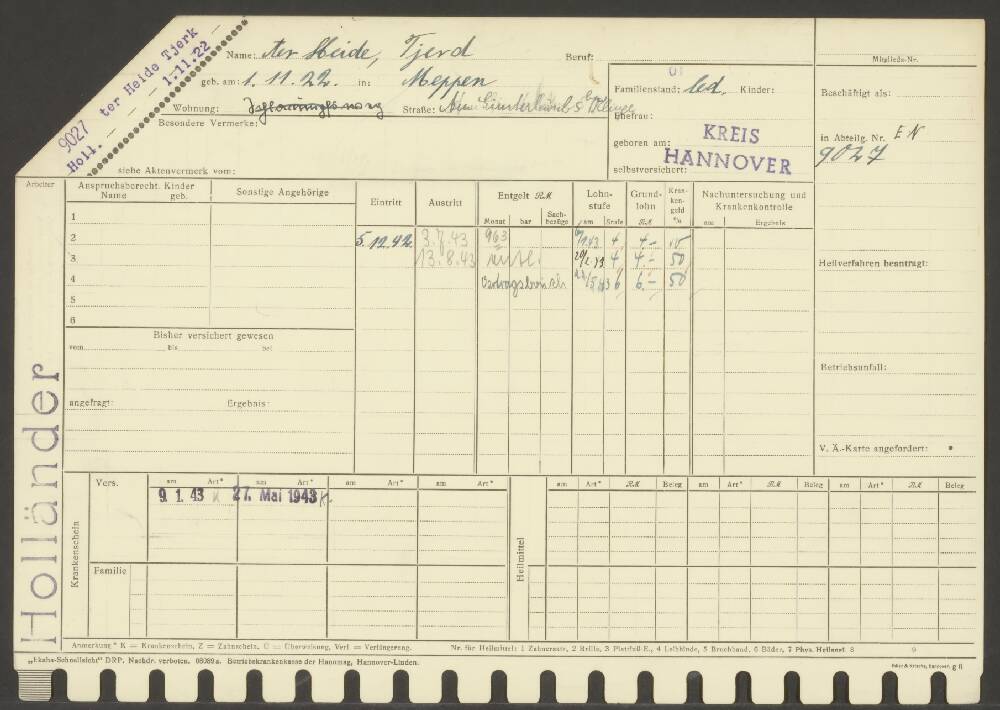 9027 ter Heide Tjerk
Holl. 1.11.22
Name: ter Heide, Tjerd Beruf:
geb. am: 1. 11. 22. in: Meppen
Wohnung: Straße:
Besondere Vermerke:
siehe Aktenvermerk vom:
Familienstand: led. Kinder:
Ehefrau:
geboren am: KREIS
HANNOVER
selbstversichert:
Mitglieds-Nr.
Beschäftigt als:
in Abteilg. Nr. EN
9027
Heilverfahren beantragt:
Betriebsunfall:
V. Ä.-Karte angefordert:
Arbeiter
Holländer
Anspruchsberecht. Kinder
Name geb.
Sonstige Angehörige
1
2
3
4
5
6
Bisher versichert gewesen
vom bis bei
angefragt: Ergebnis:
Eintritt Austritt Entgelt RM Lohn-stufe Grund-lohn Kran-ken-geld %
Monat bar Sach-bezüge am Stufe RM
Nachuntersuchung und
Krankenkontrolle
am Ergebnis
5.12.42 3.7.43 963 4 4.-
13.8.43 4 4.- 50
Vertragsbruch 6 6.- 50
Krankenschein
Vers. am Art* am Art* am Art* am Art*
9. 1. 43 K 27. Mai 1943 K.
Familie
Heilmittel
am Art* RM Beleg am Art* RM Beleg am Art* RM Beleg
Anmerkung * K = Krankenschein, Z = Zahnschein, Ü = Überweisung, Verl = Verlängerung.
Nr. für Heilmittel: 1 Zahnersatz, 2 Brille, 3 Plattfuß-E., 4 Leibbinde, 5 Bruchband, 6 Bäder, 7 Phys. Heilanst. 8 9
„Ekaha-Schnellsicht" DRP. Nachdr. verboten. 68089a. Betriebskrankenkasse der Hanomag, Hannover-Linden.